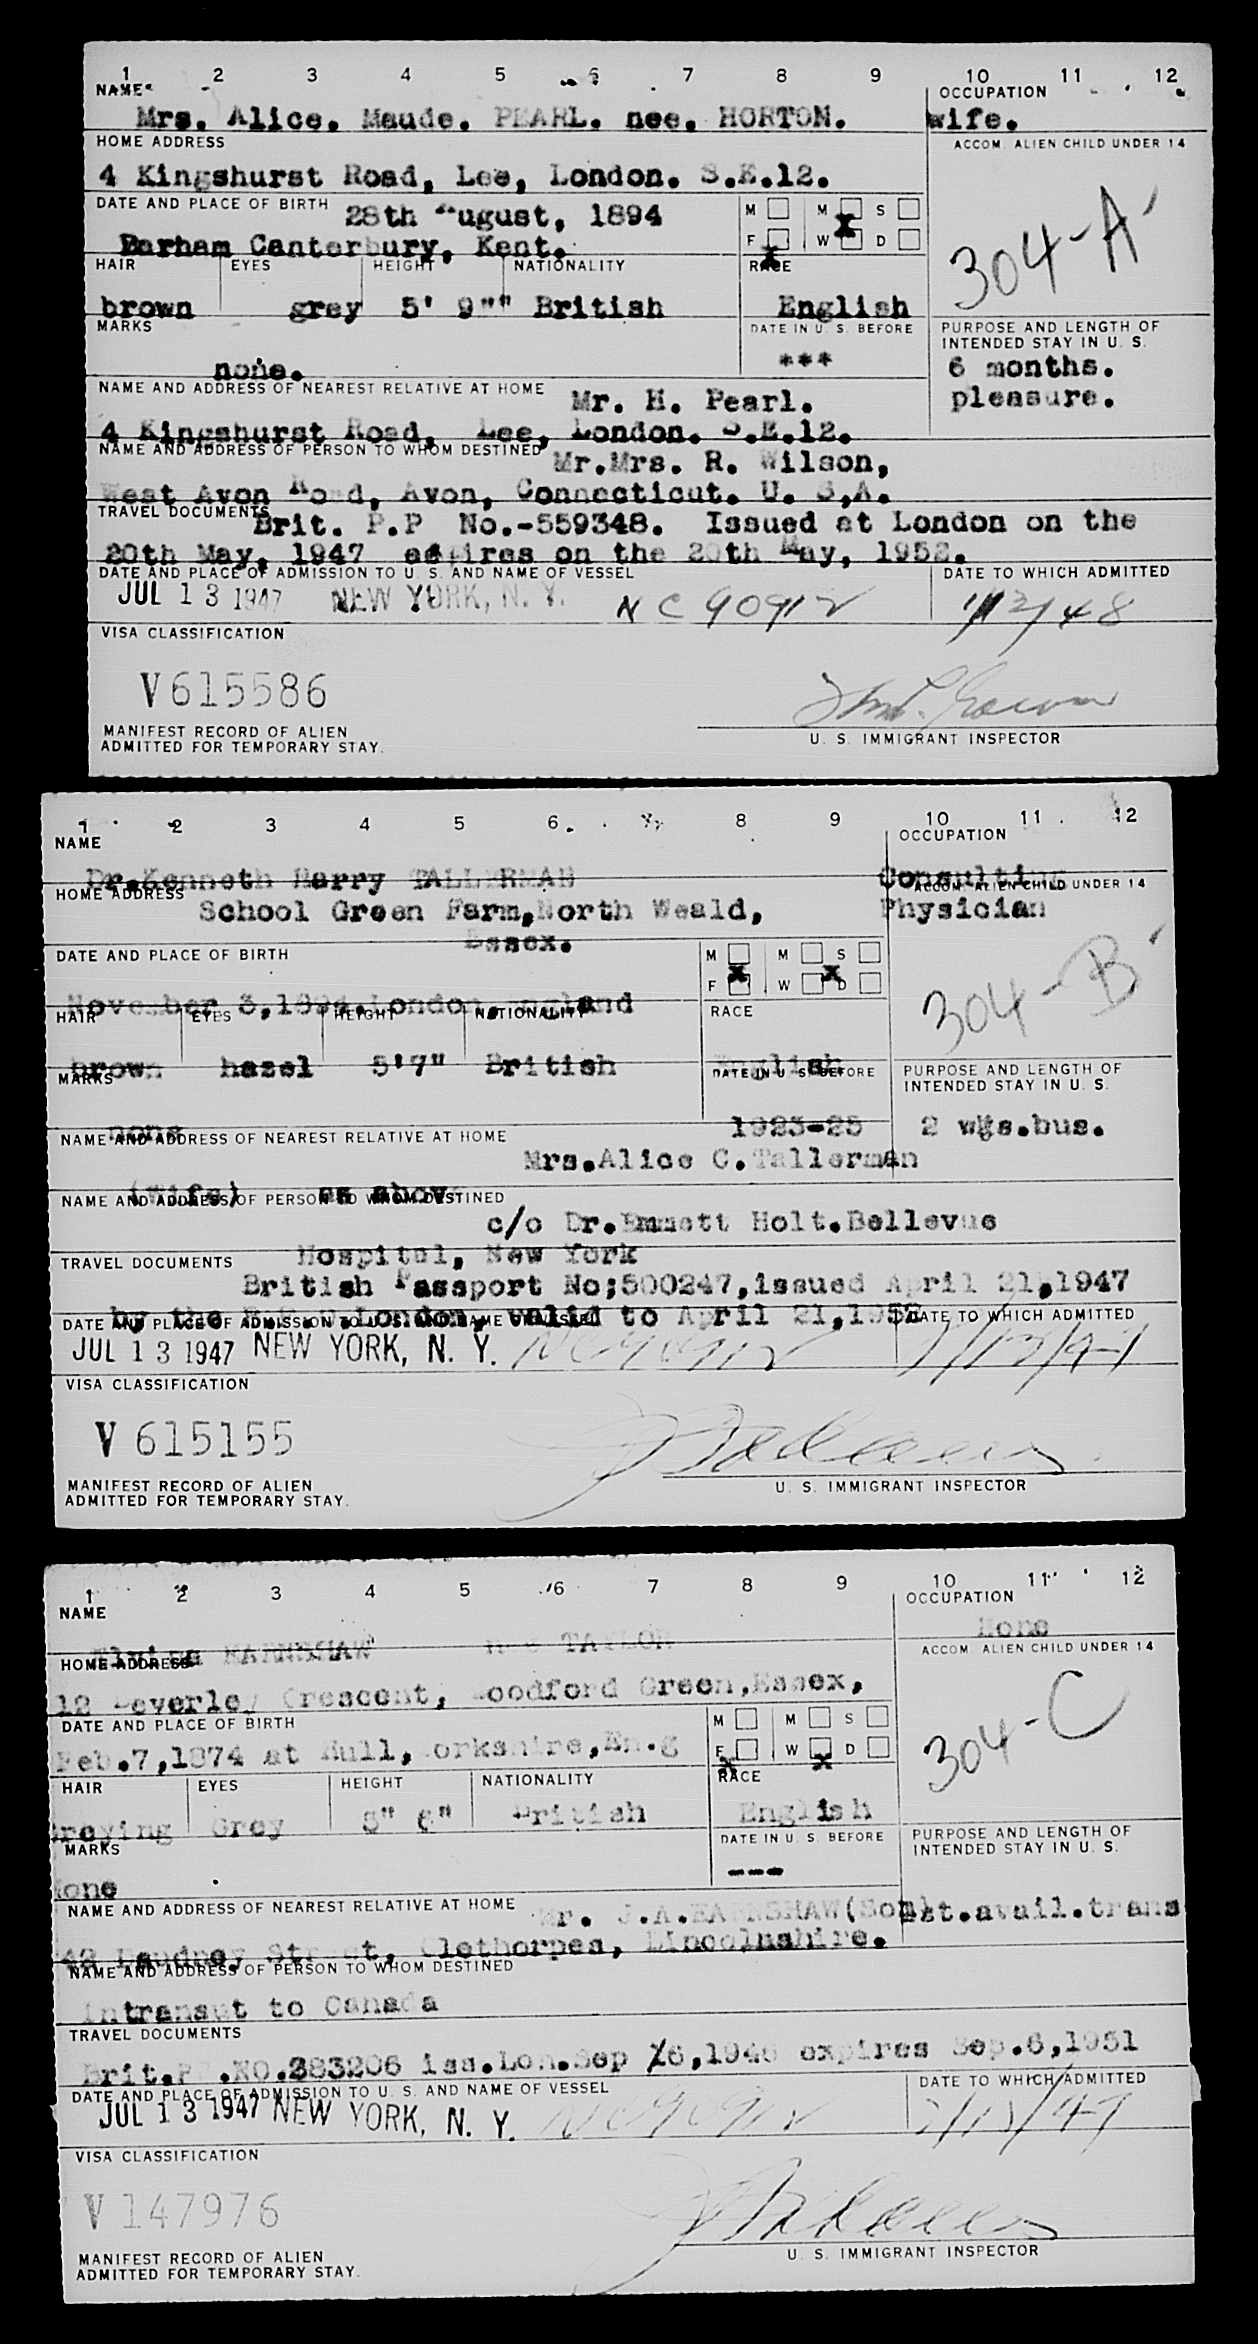 1 2 3 4 5 6 7 8 9 10 11 12
NAME OCCUPATION
Mrs. Alice. Maude. PEARL. nee. HORTON. wife.
HOME ADDRESS ACCOM. ALIEN CHILD UNDER 14
4 Kingshurst Road, Lee, London. S.E.12.
DATE AND PLACE OF BIRTH 28th August, 1894 M M S
Barham Canterbury, Kent. F W D
304-A
HAIR EYES HEIGHT NATIONALITY RACE
brown grey 5' 9"" British English
MARKS DATE IN U. S. BEFORE PURPOSE AND LENGTH OF
INTENDED STAY IN U. S.
none. *** 6 months.
NAME AND ADDRESS OF NEAREST RELATIVE AT HOME Mr. H. Pearl. pleasure.
4 Kingshurst Road, Lee, London. S.E.12.
NAME AND ADDRESS OF PERSON TO WHOM DESTINED Mr.Mrs. R. Wilson,
West Avon Road, Avon, Connecticut. U. S,A.
TRAVEL DOCUMENTS Brit. P.P No.-559348. Issued at London on the
20th May, 1947 expires on the 20th May, 1952.
DATE AND PLACE OF ADMISSION TO U. S. AND NAME OF VESSEL DATE TO WHICH ADMITTED
JUL 13 1947 NEW YORK, N. Y. NC 90912 1/12/48
VISA CLASSIFICATION
V615586
MANIFEST RECORD OF ALIEN
ADMITTED FOR TEMPORARY STAY. U. S. IMMIGRANT INSPECTOR
1 2 3 4 5 6 7 8 9 10 11 12
NAME OCCUPATION
Dr.Kenneth Harry TALLERMAN Consulting
HOME ADDRESS ACCOM. ALIEN CHILD UNDER 14
School Green Farm,North Weald, Physician
Essex.
DATE AND PLACE OF BIRTH M M S
F W D
304-B
November 3,1894.London,England
HAIR EYES HEIGHT NATIONALITY RACE
brown hazel 5'7" British English
MARKS DATE IN U. S. BEFORE PURPOSE AND LENGTH OF
INTENDED STAY IN U. S.
none 1923-25 2 wks.bus.
NAME AND ADDRESS OF NEAREST RELATIVE AT HOME
Mrs.Alice C.Tallerman
(wife) as above
NAME AND ADDRESS OF PERSON TO WHOM DESTINED
c/o Dr.Emmett Holt.Bellevue
Hospital, New York
TRAVEL DOCUMENTS
British Passport No;500247,issued April 21,1947
by the London, valid to April 21,1952
DATE AND PLACE OF ADMISSION TO U. S. AND NAME OF VESSEL DATE TO WHICH ADMITTED
JUL 13 1947 NEW YORK, N. Y. NC 90912
VISA CLASSIFICATION
V 615155
MANIFEST RECORD OF ALIEN
ADMITTED FOR TEMPORARY STAY. U. S. IMMIGRANT INSPECTOR
1 2 3 4 5 6 7 8 9 10 11 12
NAME OCCUPATION
Elvina EARNSHAW nee TAYLOR None
HOME ADDRESS ACCOM. ALIEN CHILD UNDER 14
12 Beverley Crescent, Woodford Green,Essex,
DATE AND PLACE OF BIRTH M M S
Feb.7,1874 at Hull,Yorkshire,En.g F W D
304-C
HAIR EYES HEIGHT NATIONALITY RACE
Greying Grey 5" 6" British English
MARKS DATE IN U. S. BEFORE PURPOSE AND LENGTH OF
INTENDED STAY IN U. S.
None ---
NAME AND ADDRESS OF NEAREST RELATIVE AT HOME Mr. J.A.EARNSHAW(Son) 1st.avail.trans
42 Street, Clethorpes, Lincolnshire.
NAME AND ADDRESS OF PERSON TO WHOM DESTINED
Intransut to Canada
TRAVEL DOCUMENTS
Brit.PP.NO.383206 iss.Lon.Sep 6,1946 expires Sep.6,1951
DATE AND PLACE OF ADMISSION TO U. S. AND NAME OF VESSEL DATE TO WHICH ADMITTED
JUL 13 1947 NEW YORK, N. Y. NC 90912
VISA CLASSIFICATION
V 147976
MANIFEST RECORD OF ALIEN
ADMITTED FOR TEMPORARY STAY. U. S. IMMIGRANT INSPECTOR